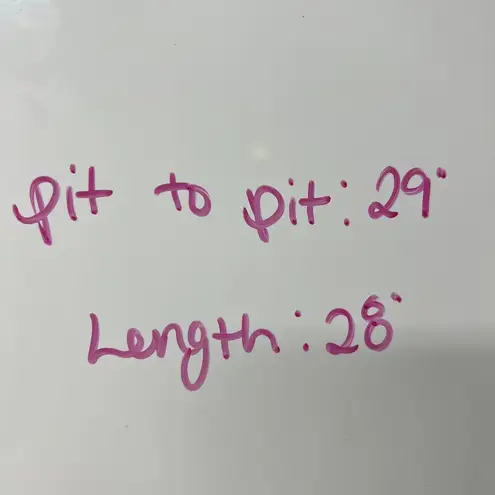 pit to pit: 29"
Length: 28"